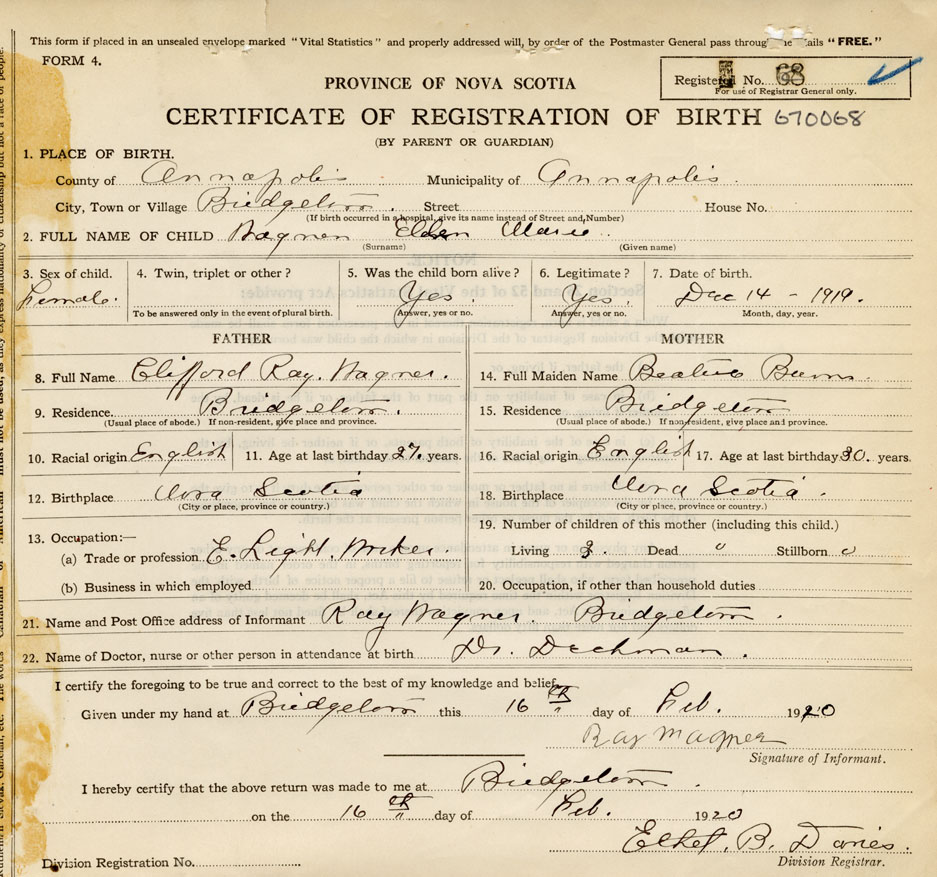 This form if placed in an unsealed envelope marked "Vital Statistics" and properly addressed will, by order of the Postmaster General pass through the mails "FREE."
FORM 4.
Registered No. 68
For use of Registrar General only.
PROVINCE OF NOVA SCOTIA
CERTIFICATE OF REGISTRATION OF BIRTH 670068
(BY PARENT OR GUARDIAN)
1. PLACE OF BIRTH.
County of Annapolis Municipality of Annapolis
City, Town or Village Bridgetown. Street House No.
(If birth occurred in a hospital, give its name instead of Street and Number)
2. FULL NAME OF CHILD Wagner Marie
(Surname) (Given name)
3. Sex of child. 4. Twin, triplet or other? 5. Was the child born alive? 6. Legitimate? 7. Date of birth.
Female. Yes. Yes. Dec 14 - 1919.
To be answered only in the event of plural birth. Answer, yes or no. Answer, yes or no. Month, day, year.
FATHER MOTHER
8. Full Name Clifford Ray. Wagner. 14. Full Maiden Name Beatrice Burns.
9. Residence. Bridgetown. 15. Residence Bridgetown
(Usual place of abode.) If non-resident, give place and province. (Usual place of abode.) If non-resident, give place and province.
10. Racial origin English 11. Age at last birthday 27. years. 16. Racial origin English 17. Age at last birthday 30. years.
12. Birthplace Nova Scotia 18. Birthplace Nova Scotia.
(City or place, province or country.) (City or place, province or country.)
13. Occupation:— 19. Number of children of this mother (including this child.)
(a) Trade or profession E. Light. Worker. Living Dead " Stillborn "
(b) Business in which employed 20. Occupation, if other than household duties
21. Name and Post Office address of Informant Ray Wagner. Bridgetown.
22. Name of Doctor, nurse or other person in attendance at birth Dr. Dechman.
I certify the foregoing to be true and correct to the best of my knowledge and belief.
Given under my hand at Bridgetown this 16th day of Feb. 1920
Ray Wagner
Signature of Informant.
I hereby certify that the above return was made to me at Bridgetown.
on the 16th day of Feb. 1920
Ethel. B. Davies.
Division Registration No. Division Registrar.